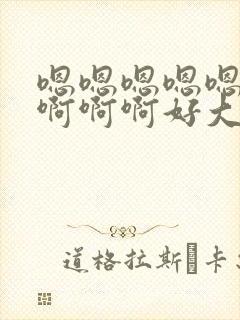 嗯嗯嗯嗯嗯
啊啊啊好大
道格拉斯 卡